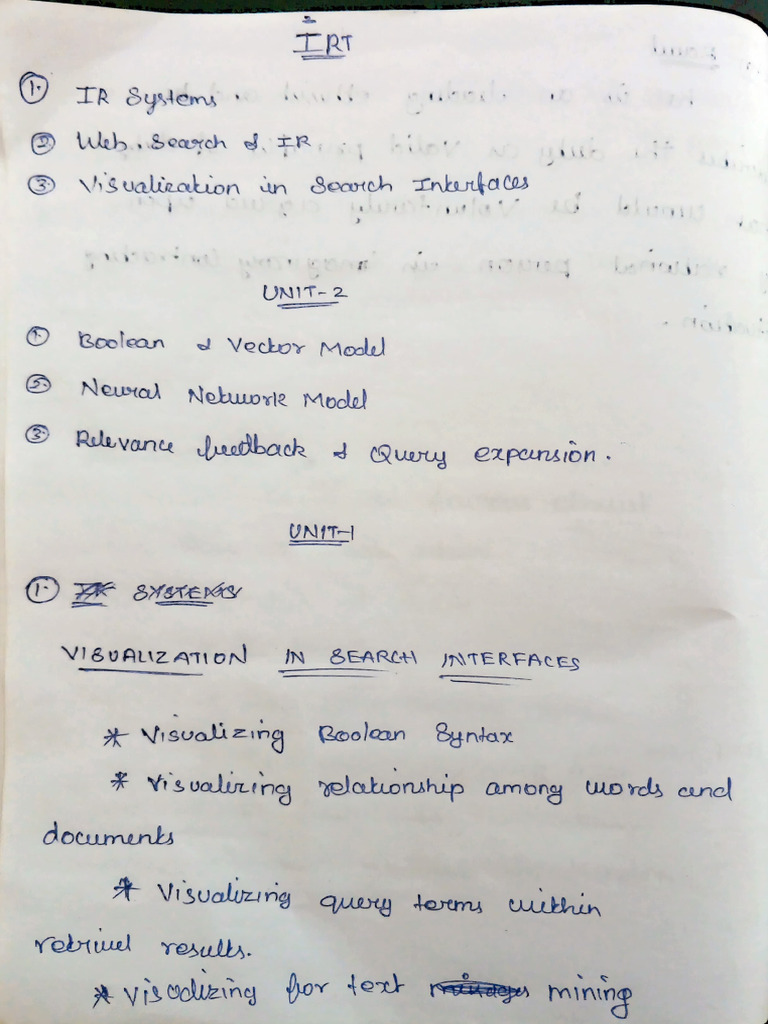 IRT
1. IR Systems
2. Web Search & IR
3. Visualization in Search Interfaces
UNIT-2
1. Boolean & Vector Model
2. Neural Network Model
3. Relevance feedback & Query expansion.
UNIT-1
1. IR SYSTEMS
VISUALIZATION IN SEARCH INTERFACES
* Visualizing Boolean Syntax
* Visualizing relationship among words and
documents
* Visualizing query terms within
retrivel results.
* Viscolizing for text mining